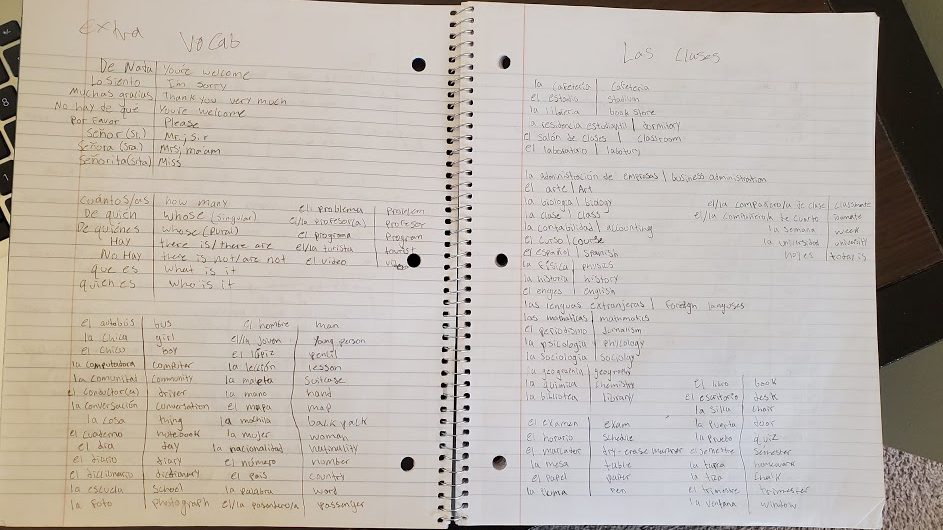 extra vocab
De Nada | You're welcome
Lo siento | I'm sorry
Muchas gracias | Thank you very much
No hay de que | You're welcome
Por Favor | Please
Señor (Sr.) | Mr., Sir
Señora (Sra.) | Mrs, maam
Señorita (Srta) | Miss
cuántos/as | how many
De quien | whose (singular)
De quienes | whose (plural)
Hay | there is/there are
No Hay | there is not/are not
que es | what is it
quien es | who is it
el problema | Problem
el/la profesor(a) | Profesor
el programa | Program
el/la turista | tourist
el video | video
el autobús | bus
la chica | girl
el chico | boy
la computadora | computer
la comunidad | community
el conductor(a) | driver
la conversación | conversation
la cosa | thing
el cuaderno | notebook
el día | day
el diario | diary
el diccionario | dictionary
la escuela | school
la foto | photograph
el hombre | man
el/la joven | young person
el lápiz | pencil
la lección | lesson
la maleta | suitcase
la mano | hand
el mapa | map
la mochila | backpack
la mujer | woman
la nacionalidad | nationality
el número | number
el país | country
la palabra | word
el/la pasajero/a | passenger
Las clases
la cafetería | cafeteria
el estadio | stadium
la librería | book store
la residencia estudiantil | dormitory
el salón de clases | classroom
el laboratorio | labotory
la administración de empresas | business administration
el arte | Art
la biología | biology
la clase | class
la contabilidad | accounting
el curso | course
el español | spanish
la física | physics
la historia | history
el ingles | english
las lenguas extranjeras | foreign languges
las matemáticas | mathmatics
el periodismo | Jornalism
la psicología | Phycology
la sociología | sociology
la geographía | geography
la química | chemistry
la bibliotea | library
el/la compañero/a de clase | classmate
el/la compañero/a de cuarto |
la semana | week
la universidad | university
hoy es | today is
el examen | exam
el horario | schedule
el marcater | dry-erase marker
la mesa | table
el papel | paper
la pluma | pen
el libro | book
el escritorio | desk
la silla | chair
la puerta | door
la prueba | quiz
el semestre | semester
la tarea | homework
la tiza | chalk
el trimestre | trimester
la ventana | window